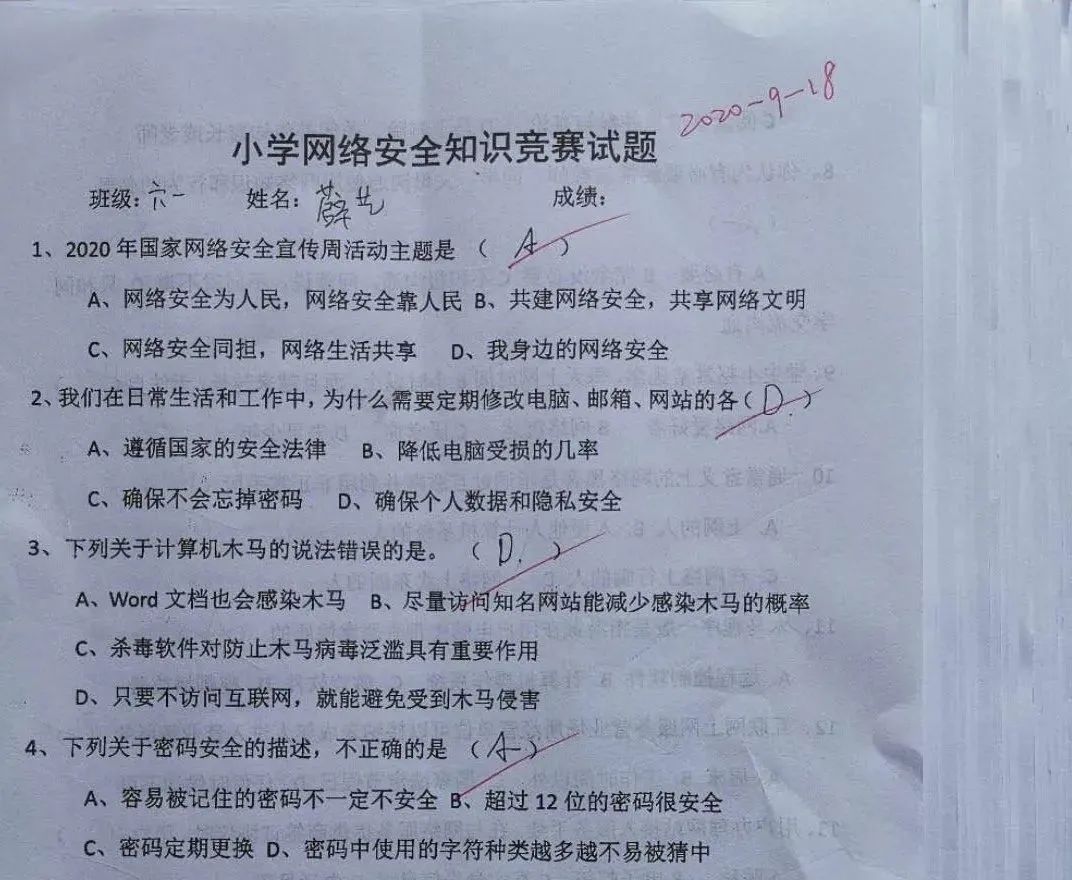 2020-9-18
小学网络安全知识竞赛试题
班级:六一 姓名:薛艺 成绩:
1、2020 年国家网络安全宣传周活动主题是 ( A )
A、网络安全为人民，网络安全靠人民 B、共建网络安全，共享网络文明
C、网络安全同担，网络生活共享 D、我身边的网络安全
2、我们在日常生活和工作中，为什么需要定期修改电脑、邮箱、网站的各( D. )
A、遵循国家的安全法律 B、降低电脑受损的几率
C、确保不会忘掉密码 D、确保个人数据和隐私安全
3、下列关于计算机木马的说法错误的是。 ( D. )
A、Word 文档也会感染木马 B、尽量访问知名网站能减少感染木马的概率
C、杀毒软件对防止木马病毒泛滥具有重要作用
D、只要不访问互联网，就能避免受到木马侵害
4、下列关于密码安全的描述，不正确的是 ( A )
A、容易被记住的密码不一定不安全 B、超过 12 位的密码很安全
C、密码定期更换 D、密码中使用的字符种类越多越不易被猜中